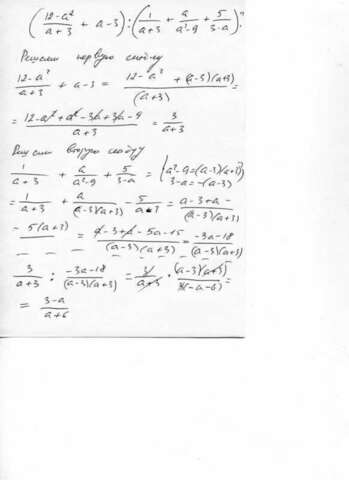 (12-a²/a+3 + a-3):(1/a+3 + a/a²-9 + 5/3-a).
Решаем первую скобку
12-a²/a+3 + a-3 = 12-a² + (a-3)(a+3)/(a+3) =
= 12-a²+a²-3a+3a-9/a+3 = 3/a+3
Решаем вторую скобку
1/a+3 + a/a²-9 + 5/3-a = {a²-9=(a-3)(a+3) 3-a=-(a-3)
= 1/a+3 + a/(a-3)(a+3) - 5/a-3 = a-3+a-/(a-3)(a+3)
- 5(a+3) = a-3+a-5a-15/(a-3)(a+3) = -3a-18/(a-3)(a+3)
3/a+3 : -3a-18/(a-3)(a+3) = 3/a+3 · (a-3)(a+3)/3(-a-6) =
= 3-a/a+6